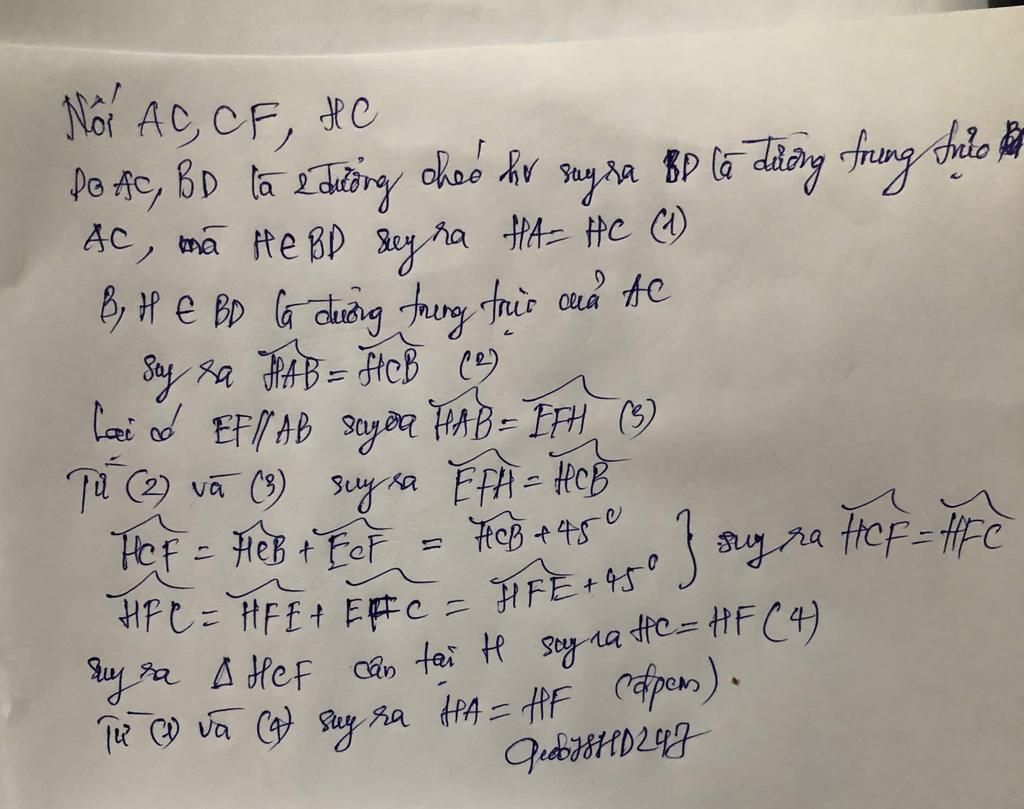 Nối AC, CF, HC
Do AC, BD là 2 đường chéo hv suy ra BD là đường trung trực
AC, mà H∈BD suy ra HA = HC (1)
B, H ∈ BD là đường trung trực của AC
suy ra HAB = HCB (2)
Lại có EF//AB suy ra HAB = EFH (3)
Từ (2) và (3) suy ra EFH = HCB
HCF = HCB + ECF = HCB + 45⁰ } suy ra HCF = HFC
HFC = HFE + EFC = HFE + 45⁰
suy ra Δ HCF cân tại H suy ra HC = HF (4)
Từ (1) và (4) suy ra HA = HF (đpcm).